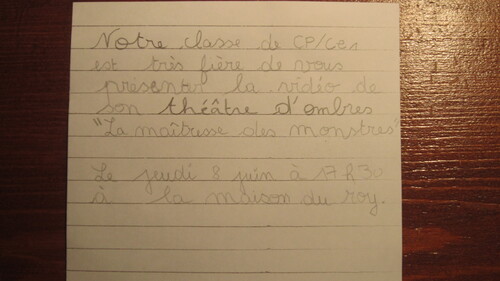 Notre classe de CP/CE1
est très fière de vous
présenter la vidéo de
son théâtre d'ombres
"La maîtresse des monstres"
Le jeudi 8 juin à 17 h 30
à la maison du roy.